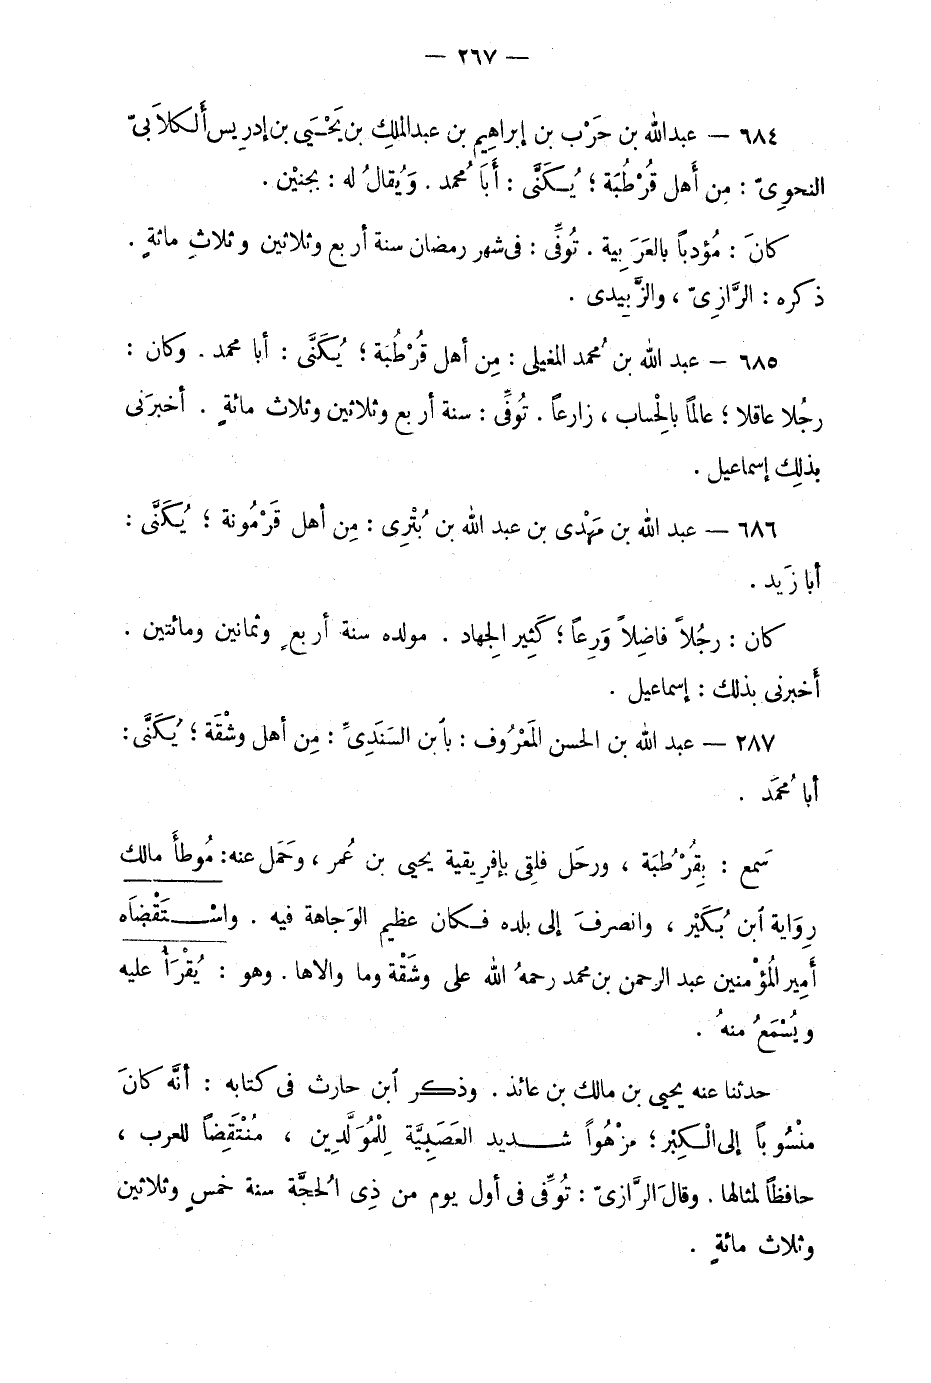 — ٢٦٧ —
٦٨٤ — عبدالله بن حَرْب بن إبراهِيم بن عبدالملِك بن يَحْـيَي بن إدريس أَلكلاَبىّ
النحوِىّ : مِن أَهل قُرْطُبَة ؛ يُـكَنَّى : أَبَا مُحمد . وَيُقالُ له : بجنيْن .
كانَ : مُؤدباً بالعَرَبِية . تُوفِّى : فى شهر رمضان سنة أربع وثلاثين وثلاثِ مائةٍ .
ذكره : الرَّازِىّ ، والزَّبِيدى .
٦٨٥ — عبد الله بن مُحمد المغيلى : مِن أهل قُرْطُبَة ؛ يُكَنَّى : أبا محمد . وكان :
رجُلا عاقلا ؛ عالمًا بالِحْساب ، زارعاً . تُوفِّى : سنة أربع وثلاثين وثلاث مائةٍ . أخبرَنى
بذلِك إسماعيل .
٦٨٦ — عبد الله بن مَهْدى بن عبد الله بن بُتْرِى : مِن أهل قَرْمُونة ؛ يُـكَنَّى :
أبا زَيد .
كان : رجُلاً فاضِلاً وَرِعاً ؛ كَثِير الِجهاد . مولده سنة أربعٍ وثمانين ومائتين .
أَخبرنى بذلك : إسماعيل .
٢٨٧ — عبد الله بن الحسن المَعْرُوف : بأبن السَنَدِىِّ : مِن أهل وشْقَة ؛ يُكَنَّى :
أبا مُحمَد .
سَمع : بِقُرْطُبَة ، ورحَل فلقِى بإفرِيقية يحيى بن عُمر ، وحَمَل عنه : مُوطأَ مالك
رِوَاية ٱبن بُكَيْر ، وانصرفَ إلى بلده فـكان عظيم الوَجاهة فيه . واسْـتَقْضاَه
أَمِير المُؤْمنين عبد الرحمن بن محمد رحمهُ الله على وشَقْة وما والاها . وهو : يُقْرَأ عليه
ويُسْمَعُ منهُ .
حدثنا عنه يحيى بن مالك بن عائذ . وذكر ٱبن حارث فى كتابه : أنَّه كانَ
منْسُوباً إلى الْـكِبْر ؛ مزْهُواً شـديد العَصَبِيَّة لِلْمُوَلَّدِين ، مُنْتَقِضاً للعرب ،
حافظاً لمثالها . وقالَ الرَّازىّ : تُوفِّى فى أول يوم من ذِى الْحجَّة سنة خمسٍ وثلاثين
وثلاث مائةٍ .